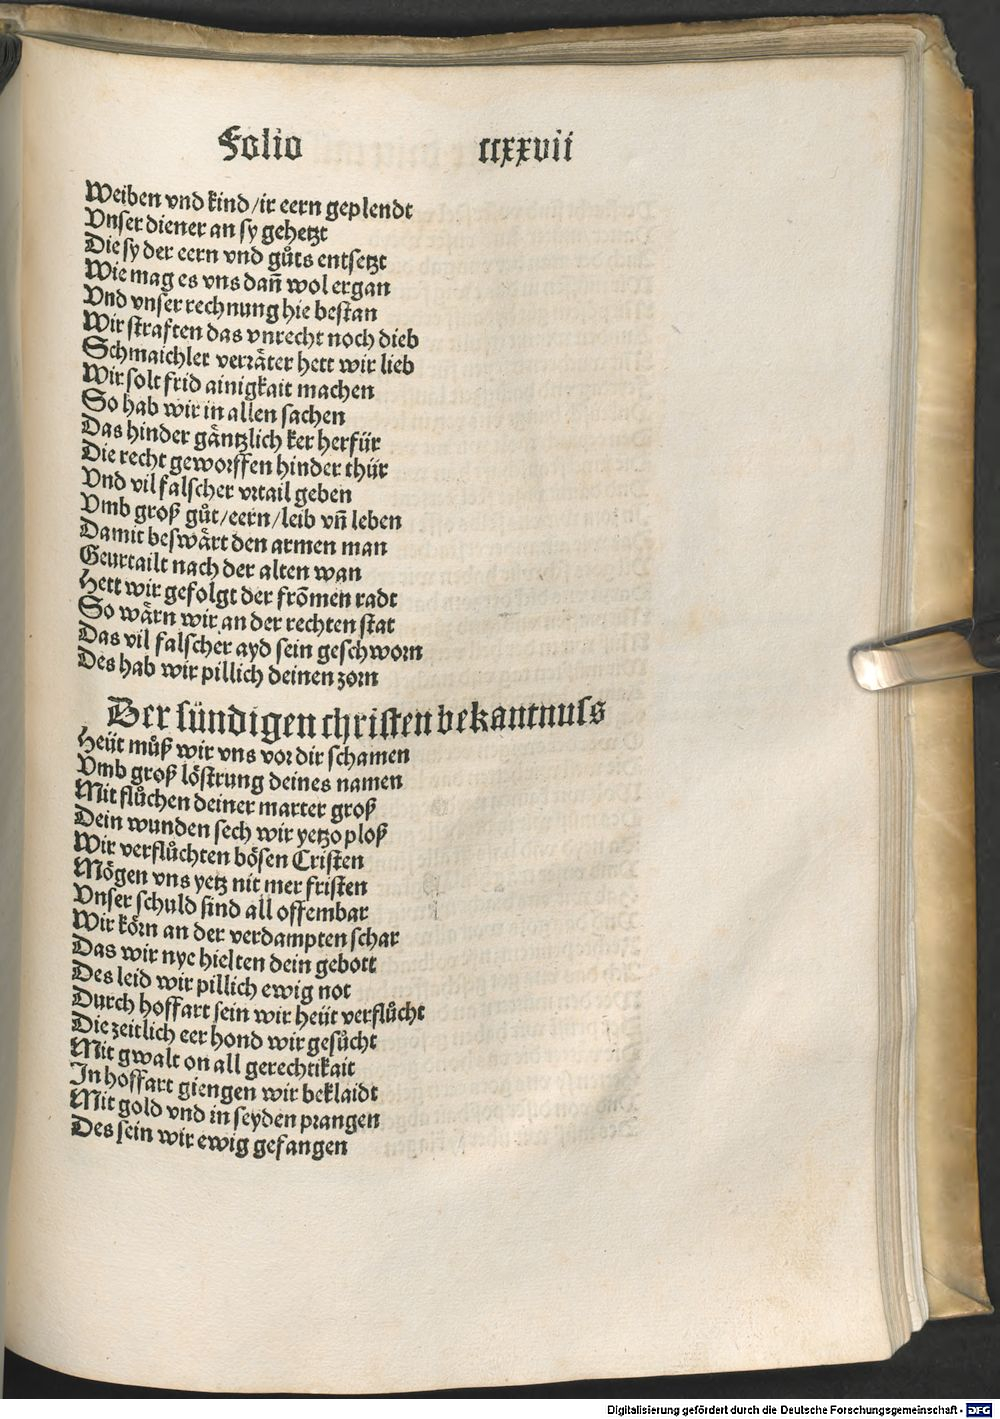 Folio ccxxvii
Weiben vnd kind/ir eern geplendt
Vnser diener an sy gehetzt
Die sy der eern vnd gůts entsetzt
Wie mag es vns dañ wol ergan
Vnd vnser rechnung hie bestan
Wir straften das vnrecht noch dieb
Schmaichler verräter hett wir lieb
Wir solt frid ainigkait machen
So hab wir in allen sachen
Das hinder gäntzlich ker herfür
Die recht geworffen hinder thür
Vnd vil falscher vrtail geben
Vmb groß gůt/eern/leib vñ leben
Damit beswärt den armen man
Geurtailt nach der alten wan
Hett wir gefolgt der frõmen radt
So wärn wir an der rechten stat
Das vil falscher ayd sein geschworn
Des hab wir pillich deinen zorn
Der sündigen christen bekantnuss
Heüt můß wir vns vor dir schamen
Vmb groß löstrung deines namen
Mit flůchen deiner marter groß
Dein wunden sech wir yetzo ploß
Wir verflůchten bösen Cristen
Mögen vns yetz nit mer fristen
Vnser schuld sind all offembar
Wir körn an der verdampten schar
Das wir nye hielten dein gebott
Des leid wir pillich ewig not
Durch hoffart sein wir heüt verflůcht
Die zeitlich eer hond wir gesůcht
Mit gwalt on all gerechtikait
In hoffart giengen wir beklaidt
Mit gold vnd in seyden prangen
Des sein wir ewig gefangen
Digitalisierung gefördert durch die Deutsche Forschungsgemeinschaft - DFG